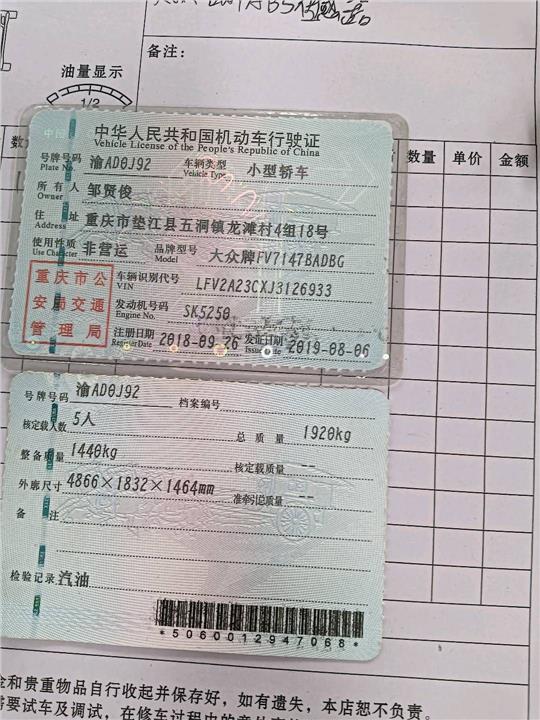 备注：
油量显示
1/2
中华人民共和国机动车行驶证
Vehicle License of the People's Republic of China
号牌号码 渝AD0J92 车辆类型 小型轿车
Plate No. Vehicle Type
所有人 邹贤俊
Owner
住址 重庆市垫江县五洞镇龙滩村4组18号
Address
使用性质 非营运 品牌型号 大众牌FV7147BADBG
Use Character Model
重庆市公安局交通管理局
车辆识别代号 LFV2A23CXJ3126933
VIN
发动机号码 SK5250
Engine No.
注册日期 2018-09-26 发证日期 2019-08-06
Register Date Issue Date
数量 单价 金额
号牌号码 渝AD0J92 档案编号
核定载人数 5人 总质量 1920kg
整备质量 1440kg 核定载质量 --
外廓尺寸 4866×1832×1464mm 准牵引总质量 --
备注
检验记录 汽油
*5060012947068*
金和贵重物品自行收起并保存好，如有遗失，本店恕不负责。
需要试车及调试，在修车过程中的意外